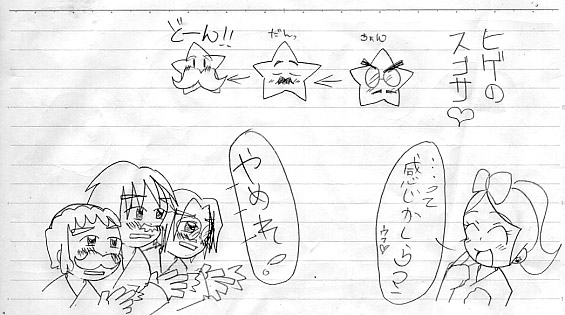 ヒゲの
スゴサ♡
ちょん
だんっ
どーん!!
…って
感じかしらっ
ウフ♡
やめれ!